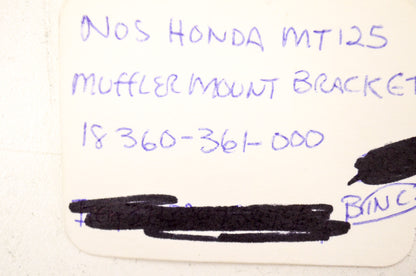 NOS HONDA MT125
MUFFLER MOUNT BRACKET
18360-361-000